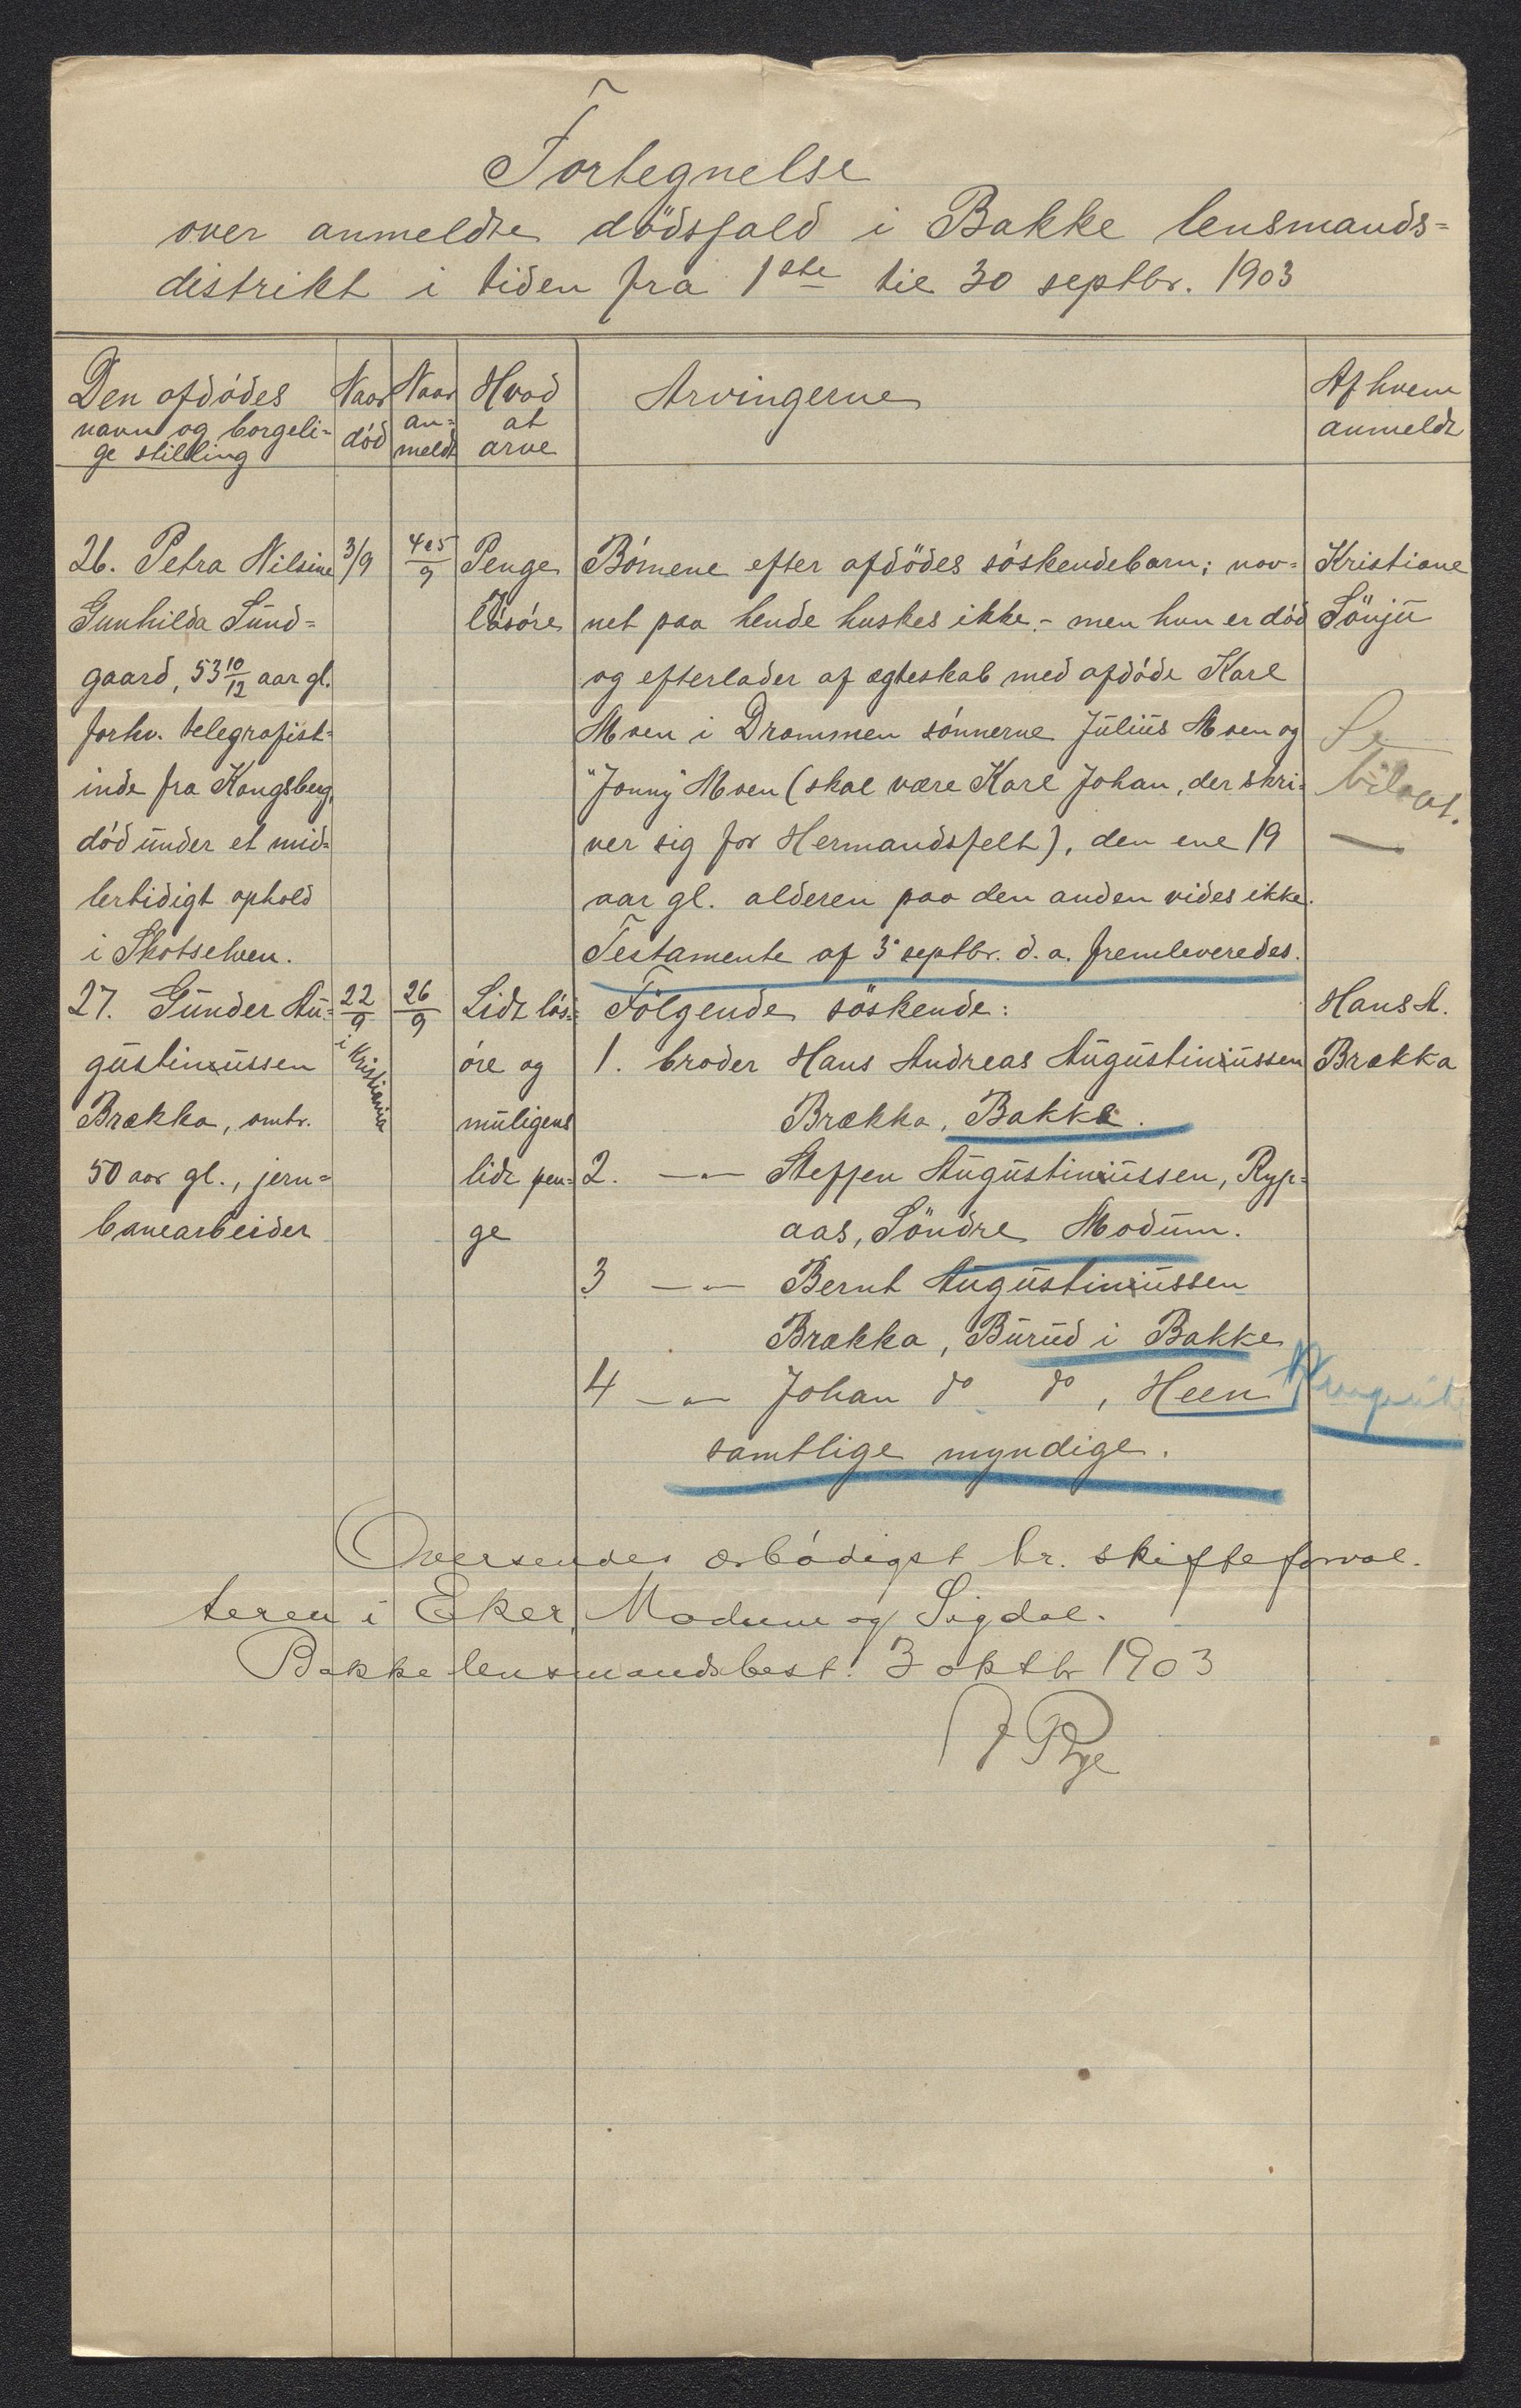 Fortegnelse
over anmeldte dödsfald i Bakke lensmands=
distrikt i tiden fra 1ste til 30 septbr. 1903
Den afdódes
navn og borgeli=
ge stilling
Naar
död
Naar
an=
meldt
Hvad
at
arve
Arvingerne
Af hvem
anmeldt
26. Petra Nilsine
Gunhilda Sund=
gaard, 53 10/12 aar gl.
forhv. telegrafist=
inde fra Kongsberg,
död under et mid=
lertidigt ophold
i Skotselven.
3/9
4 e 5/9
Penge
lösöre
Börnene efter afdödes söskendebarn; nav=
net paa hende huskes ikke - men hun er död
og efterlader af ægteskab med afdöde Karl
Moen i Drammen sönnerne Julius Moen og
"Jonny" Moen (skal være Karl Johan, der skri=
ver sig for Hermandsfelt), den ene 19
aar gl. alderen paa den anden vides ikke.
Testamente af 3 septbr. d. a. fremleveredes.
Kristiane
Sönju
Se
bilag.
27. Gunder Au=
gustinussen
Brækka, omtr.
50 aar gl., jern=
banearbeider
22/9
i Kristiania
26/9
Lidt lös=
öre og
muligens
lidt pen=
ge
Fölgende söskende:
1. broder Hans Andreas Augustinussen
Brækka, Bakke.
2. —"— Steffen Augustinussen, Ryp=
aas, Söndre Modum.
3 —"— Bernt Augustinussen
Brækka, Burud i Bakke
4 —"— Johan do do, Heen
samtlige myndige.
Hans A.
Brækka
Oversendes ærbödigst hr. skifteforval.
teren i Eker, Modum og Sigdal.
Bakke lensmandsbest. 3 oktbr 1903
J Rye